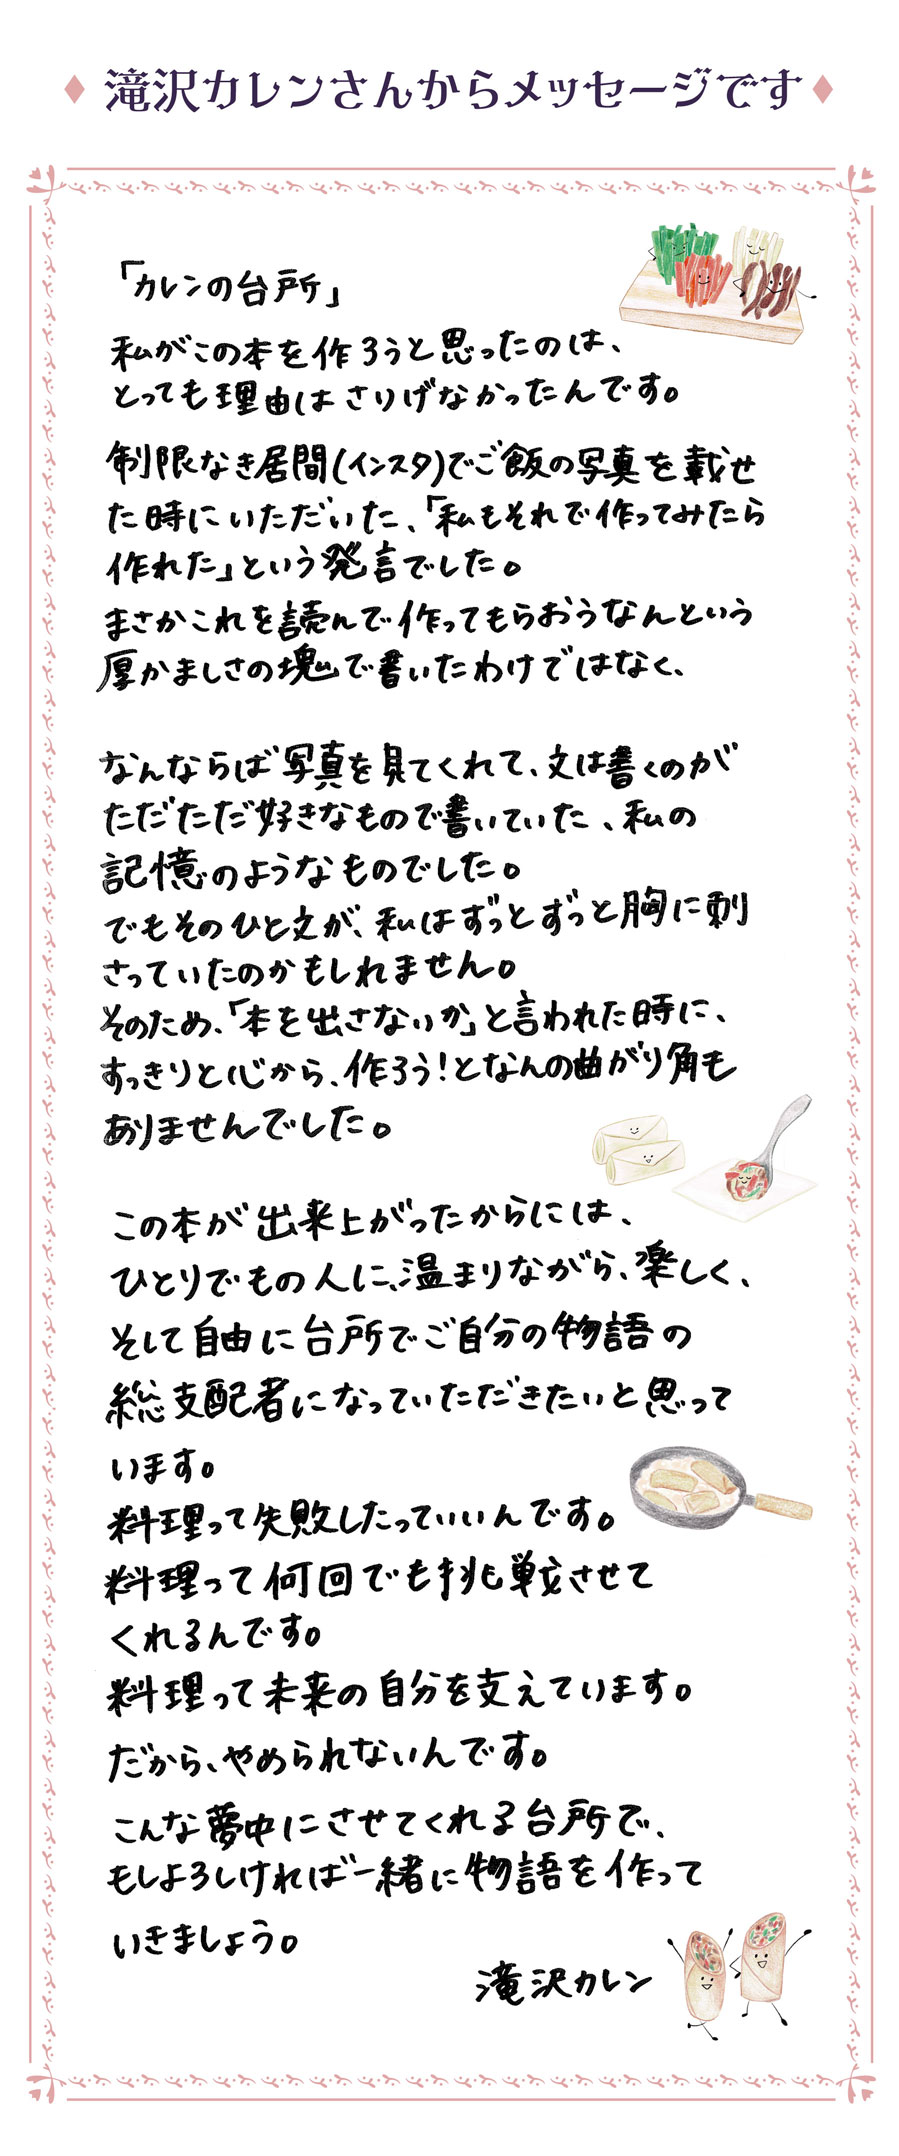 滝沢カレンさんからメッセージです
「カレンの台所」
私がこの本を作ろうと思ったのは、
とっても理由はさりげなかったんです。
制限なき居間(インスタ)でご飯の写真を載せ
た時にいただいた、「私もそれで作ってみたら
作れた」という発言でした。
まさかこれを読んで作ってもらおうなんという
厚かましさの塊で書いたわけではなく、
なんならば写真を見てくれて、文は書くのが
ただただ好きなもので書いていた、私の
記憶のようなものでした。
でもそのひと文が、私はずっとずっと胸に刺
さっていたのかもしれません。
そのため、「本を出さないか」と言われた時に、
すっきりと心から、作ろう!となんの曲がり角も
ありませんでした。
この本が出来上がったからには、
ひとりでもの人に、温まりながら、楽しく、
そして自由に台所でご自分の物語の
総支配者になっていただきたいと思って
います。
料理って失敗したっていいんです。
料理って何回でも挑戦させて
くれるんです。
料理って未来の自分を支えています。
だから、やめられないんです。
こんな夢中にさせてくれる台所で、
もしよろしければ一緒に物語を作って
いきましょう。
滝沢カレン